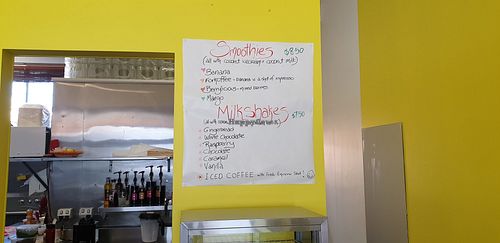 Smoothies $8.50
(all with coconut icecream & coconut milk)
Banana
Koffee - banana w a shot of espresso
Berrylicious - mixed berries
Mango
Milkshakes $7.50
(all with
Gingerbread
White Chocolate
Raspberry
Chocolate
Caramel
Vanilla
ICED COFFEE with Fresh Espresso Shot!